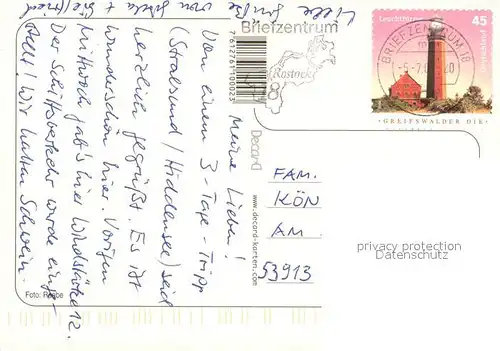 Meine Lieben!
Von einem 3-Tage-Tripp
(Stralsund/Hiddensee) seid
herzlich gegrüßt. Es ist
wunderschön hier. Vorigen
Mittwoch gab's hier Windstärke 12.
Der Schiffsverkehr wurde einge-
stellt! Wir hatten Schwein.
Liebe Grüße
von
+
Briefzentrum
Rostock
18
7612761100023
Decard
www.decard-karten.com
Leuchttürme
45
Deutschland
BRIEFZENTRUM 18
GREIFSWALDER OIE
FAM.
KÖN
AM
53913
privacy protection
Datenschutz
Foto: